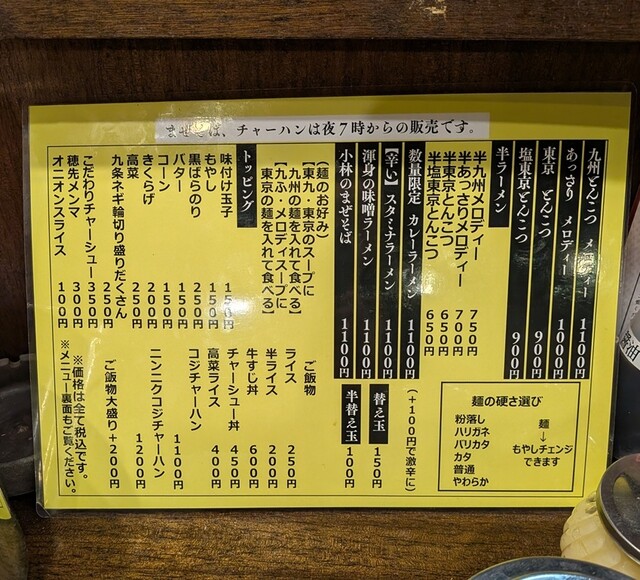 まぜそば、チャーハンは夜7時からの販売です。
九州とんこつ メロディー 1100円
あっさり メロディー 1000円
東京 とんこつ 900円
塩東京とんこつ 900円
半ラーメン
半九州メロディー 750円
半あっさりメロディー 700円
半東京とんこつ 650円
半塩東京とんこつ 650円
数量限定 カレーラーメン 1100円
(+100円で激辛に)
【辛い】スタミナラーメン 1100円
渾身の味噌ラーメン 1100円
小林のまぜそば 1100円
替え玉 150円
半替え玉 100円
麺の硬さ選び
粉落し
ハリガネ
バリカタ
カタ
普通
やわらか
麺
↓
もやしチェンジ
できます
(麺のお好み)
【東九・東京のスープに
九州の麺を入れて食べる】
【九ふ・メロディスープに
東京の麺を入れて食べる】
トッピング
味付け玉子 150円
もやし 150円
黒ばらのり 250円
バター 150円
コーン 150円
きくらげ 200円
高菜 250円
九条ネギ輪切り盛りだくさん 250円
こだわりチャーシュー 350円
穂先メンマ 300円
オニオンスライス 100円
ご飯物
ライス 250円
半ライス 200円
牛すじ丼 600円
チャーシュー丼 450円
高菜ライス 400円
コジチャーハン 1100円
ニンニクコジチャーハン 1200円
ご飯物大盛り+200円
※価格は全て税込です。
※メニュー裏面もご覧ください。